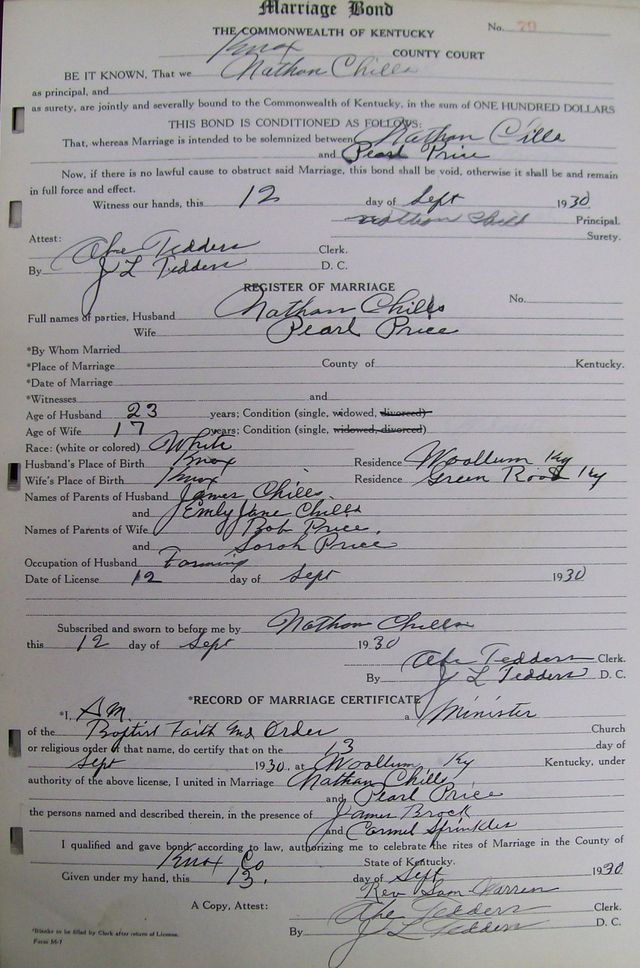 Marriage Bond
THE COMMONWEALTH OF KENTUCKY No. 70
Knox COUNTY COURT
BE IT KNOWN, That we Nathan Chills
as principal, and
as surety, are jointly and severally bound to the Commonwealth of Kentucky, in the sum of ONE HUNDRED DOLLARS
THIS BOND IS CONDITIONED AS FOLLOWS:
That, whereas Marriage is intended to be solemnized between Nathan Chills
and Pearl Price
Now, if there is no lawful cause to obstruct said Marriage, this bond shall be void, otherwise it shall be and remain
in full force and effect.
Witness our hands, this 12 day of Sept 1930
Nathan Chills Principal.
Surety.
Attest:
Abe Tedders Clerk.
By J L Tedders D. C.
REGISTER OF MARRIAGE
No.
Full names of parties, Husband Nathan Chills
Wife Pearl Price
*By Whom Married
*Place of Marriage County of Kentucky.
*Date of Marriage
*Witnesses and
Age of Husband 23 years; Condition (single, widowed, divorced)
Age of Wife 17 years; Condition (single, widowed, divorced)
Race: (white or colored) White
Husband's Place of Birth Knox Residence Woollum Ky
Wife's Place of Birth Knox Residence Green Road Ky
Names of Parents of Husband James Chills
and Emly Jane Chills
Names of Parents of Wife Bob Price,
and Sarah Price
Occupation of Husband Farming
Date of License 12 day of Sept 1930
Subscribed and sworn to before me by Nathan Chills
this 12 day of Sept 1930
Abe Tedders Clerk.
By J L Tedders D. C.
*RECORD OF MARRIAGE CERTIFICATE
*I, a Minister
of the Baptist Faith and Order Church
or religious order of that name, do certify that on the 13 day of
Sept 1930, at Woollum Ky Kentucky, under
authority of the above license, I united in Marriage Nathan Chills
and Pearl Price
the persons named and described therein, in the presence of James Brock
and Carmel Sprinkles
I qualified and gave bond, according to law, authorizing me to celebrate the rites of Marriage in the County of
Knox Co State of Kentucky.
Given under my hand, this 13. day of Sept 1930
Rev Sam Warren
A Copy, Attest: Abe Tedders Clerk.
By J L Tedders D. C.
*Blanks to be filled by Clerk after return of License.
Form M-7